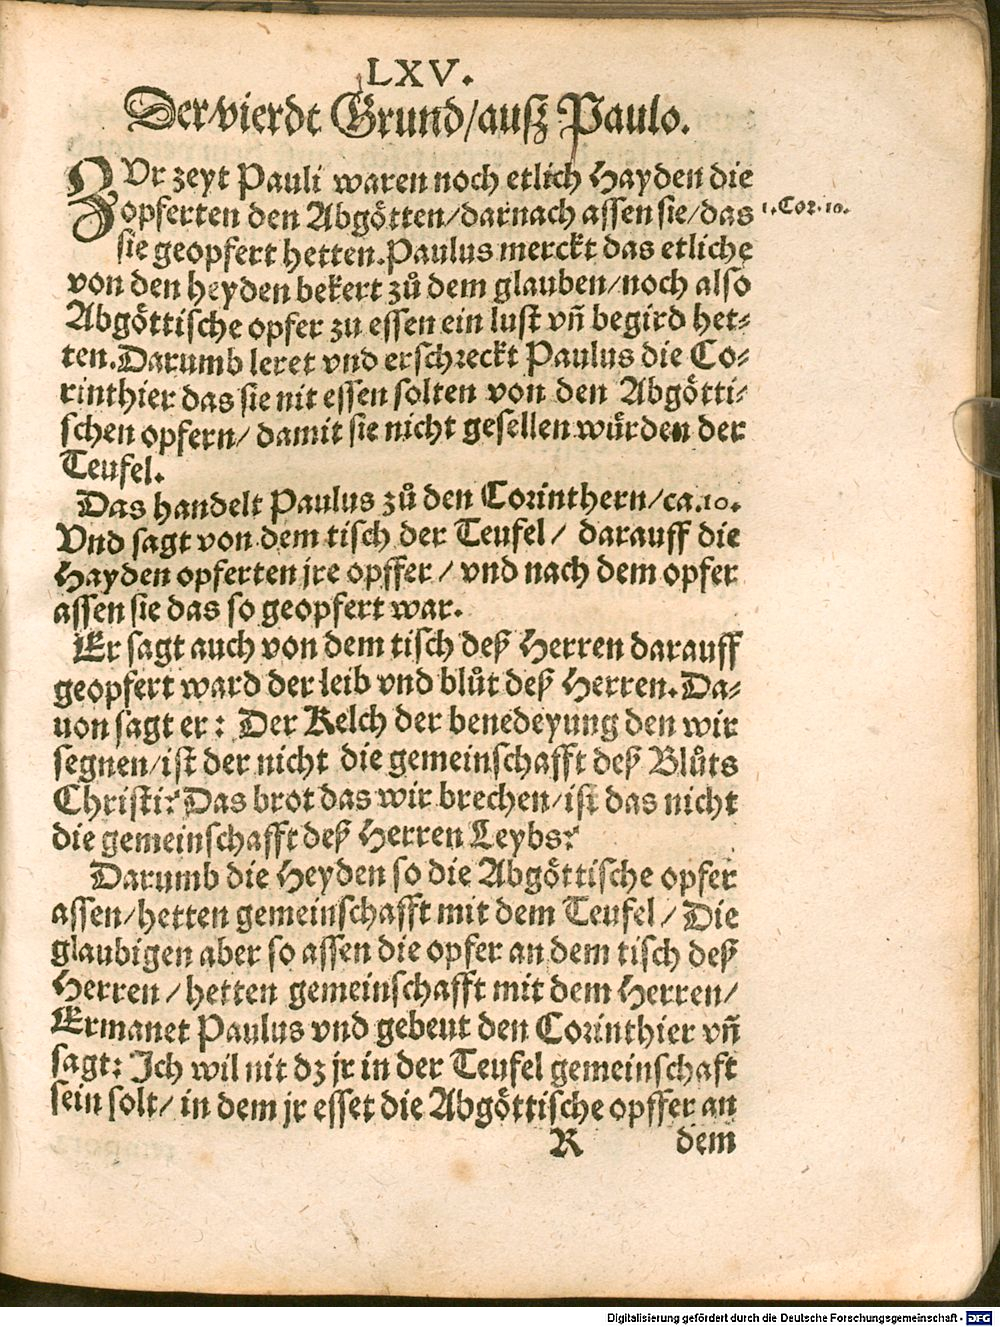 LXV.
Der vierdt Grund/ausz Paulo.
ZVr zeyt Pauli waren noch etlich Hayden die
opferten den Abgötten/darnach assen sie/das
1. Cor. 10.
sie geopfert hetten. Paulus merckt das etliche
von den heyden bekert zů dem glauben/noch also
Abgöttische opfer zu essen ein lust vñ begird het⸗
ten. Darumb leret vnd erschreckt Paulus die Co⸗
rinthier das sie nit essen solten von den Abgötti⸗
schen opfern/ damit sie nicht gesellen würden der
Teufel.
Das handelt Paulus zů den Corinthern/ca.10.
Vnd sagt von dem tisch der Teufel/ darauff die
Hayden opferten jre opffer/ vnd nach dem opfer
assen sie das so geopfert war.
Er sagt auch von dem tisch deß Herren darauff
geopfert ward der leib vnd blůt deß Herren. Da⸗
uon sagt er: Der Kelch der benedeyung den wir
segnen/ist der nicht die gemeinschafft deß Blůts
Christi? Das brot das wir brechen/ist das nicht
die gemeinschafft deß Herren Leybs?
Darumb die Heyden so die Abgöttische opfer
assen/hetten gemeinschafft mit dem Teufel/ Die
glaubigen aber so assen die opfer an dem tisch deß
Herren/hetten gemeinschafft mit dem Herren/
Ermanet Paulus vnd gebeut den Corinthier vñ
sagt: Ich wil nit dz jr in der Teufel gemeinschaft
sein solt/ in dem jr esset die Abgöttische opffer an
R dem
Digitalisierung gefördert durch die Deutsche Forschungsgemeinschaft - DFG